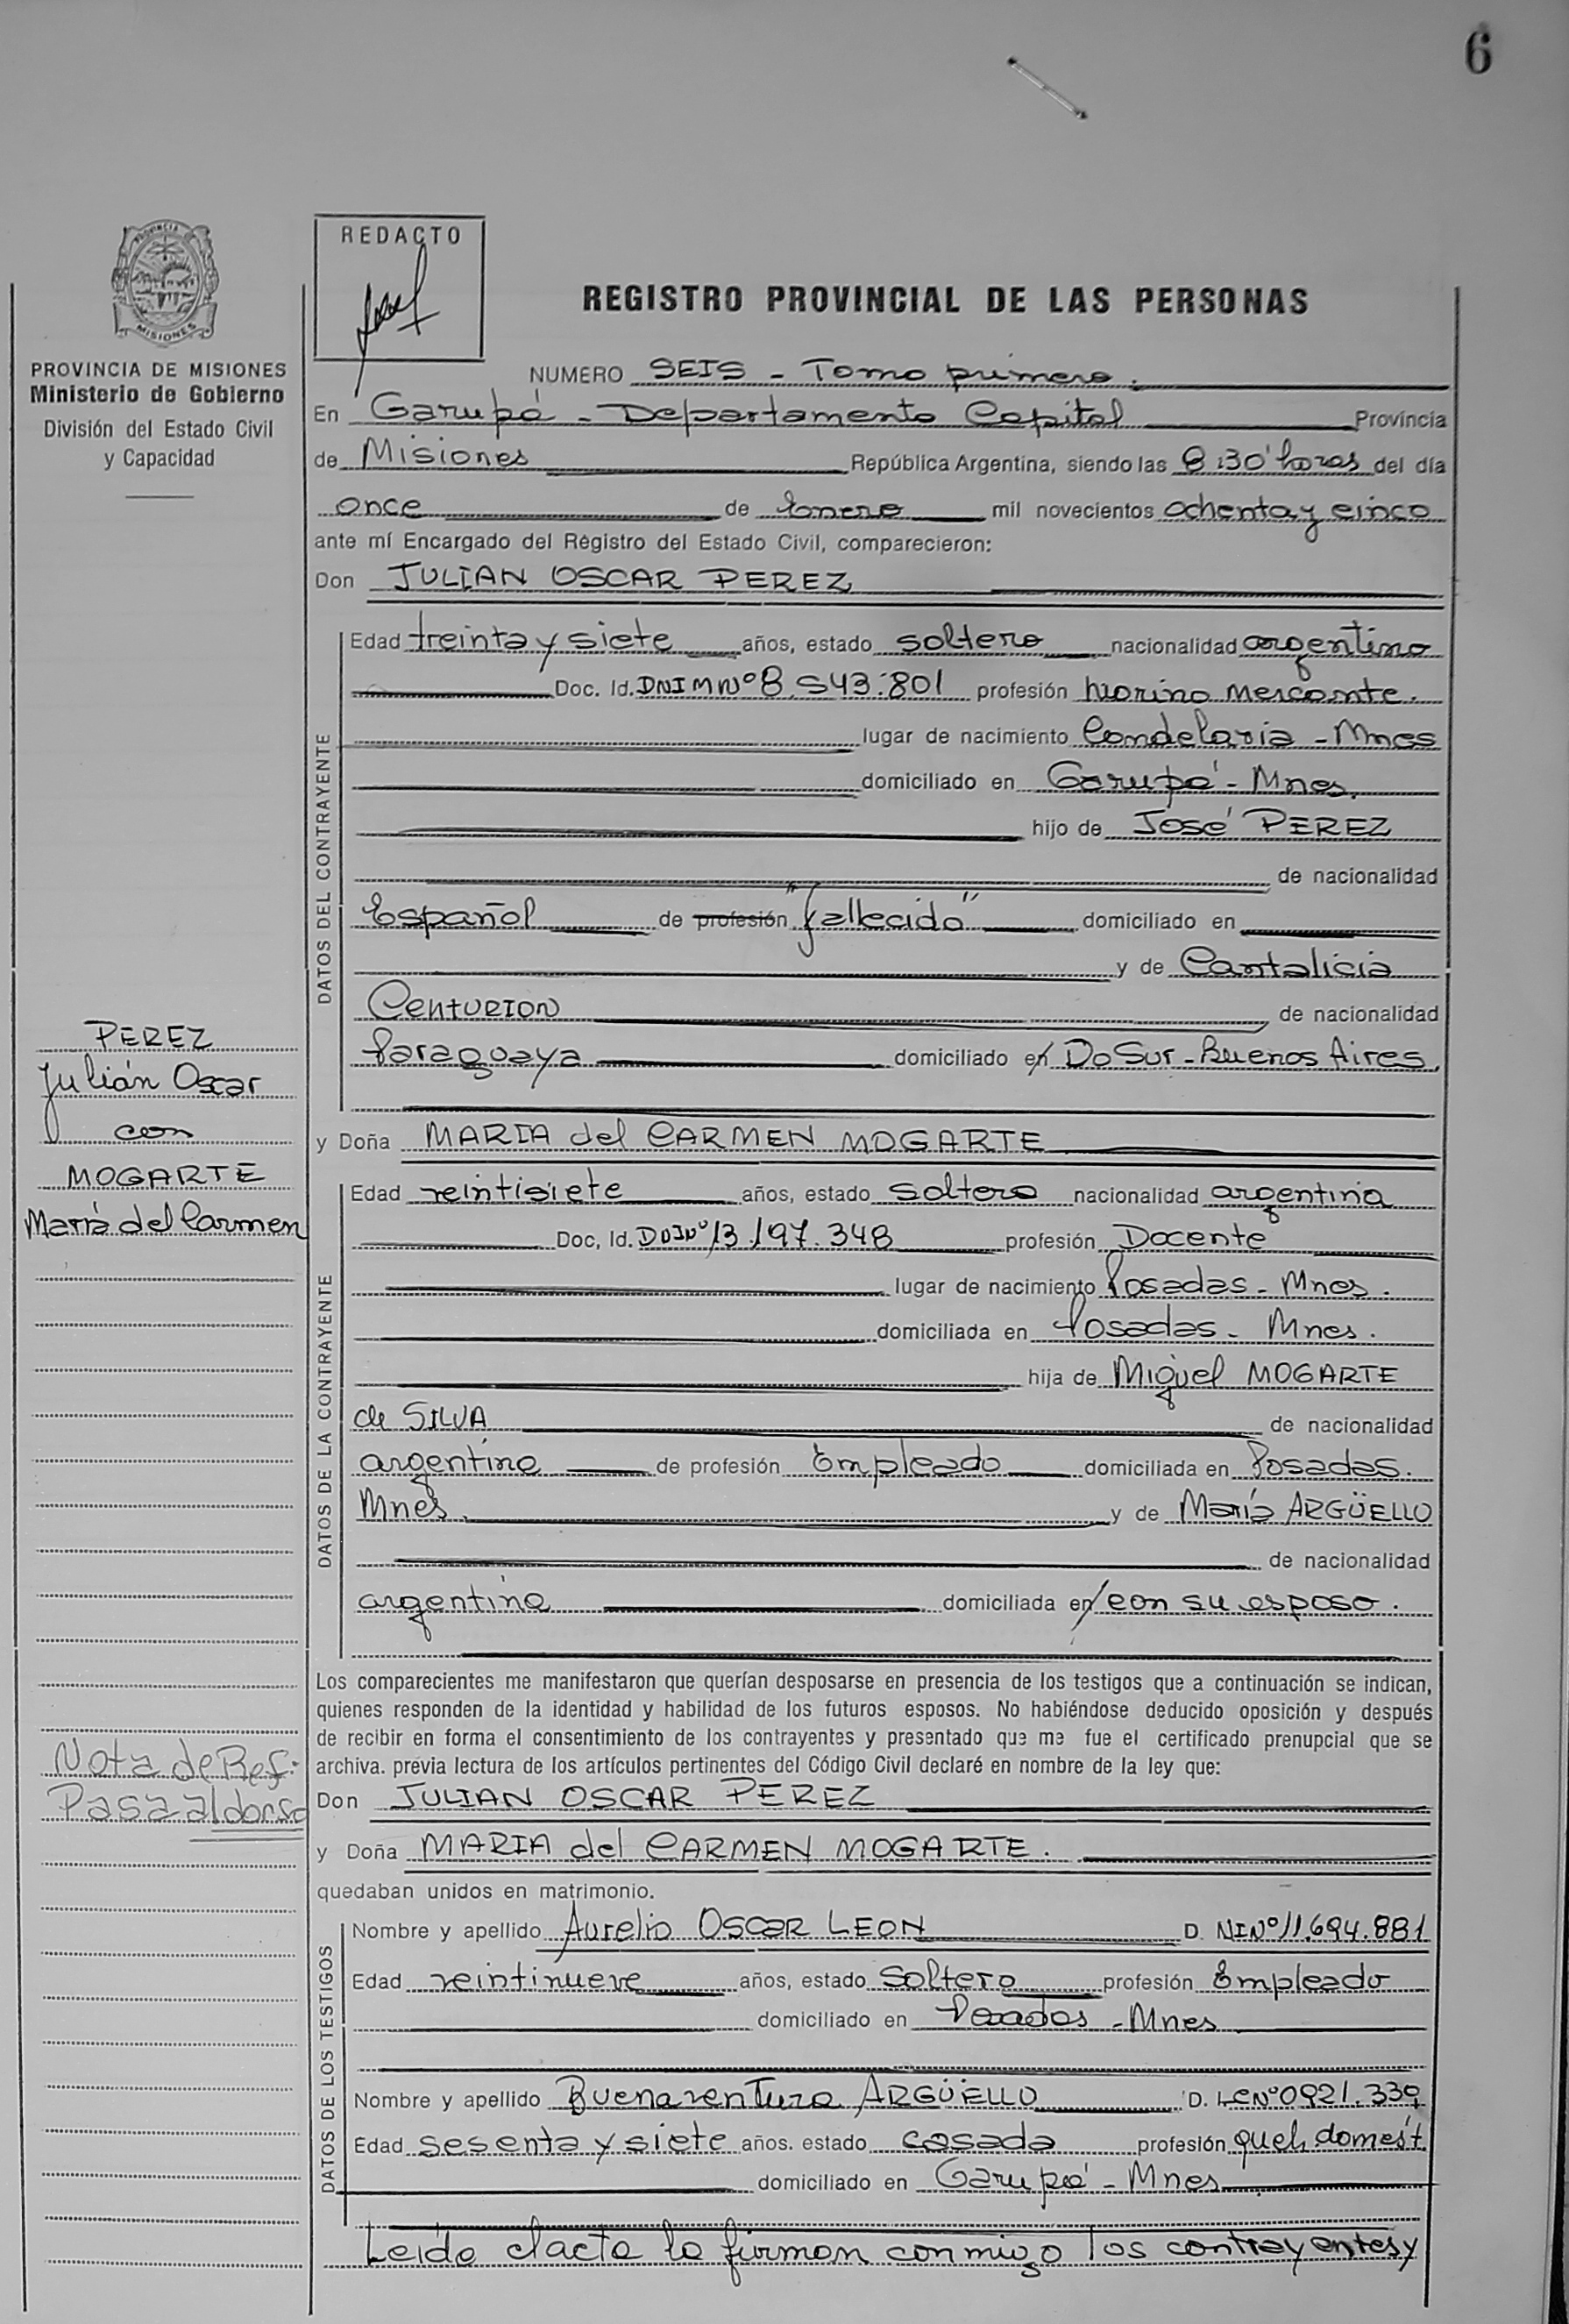 6
PROVINCIA DE
MISIONES
REDACTO
PROVINCIA DE MISIONES
Ministerio de Gobierno
División del Estado Civil
y Capacidad
REGISTRO PROVINCIAL DE LAS PERSONAS
NUMERO SEIS - Tomo primero.
En Garupá - Departamento Capital Provincia
de Misiones República Argentina, siendo las 8:30 horas del día
once de Enero mil novecientos ochenta y cinco
ante mí Encargado del Registro del Estado Civil, comparecieron:
Don JULIAN OSCAR PEREZ
DATOS DEL CONTRAYENTE
Edad treinta y siete años, estado soltero nacionalidad argentino
Doc. Id. DNIMNº 8.543.801 profesión Marino Mercante.
lugar de nacimiento Candelaria - Mnes
domiciliado en Garupá - Mnes.
hijo de José PEREZ
de nacionalidad
Español de profesión "fallecido" domiciliado en
y de Cantalicia
CENTURION de nacionalidad
Paraguaya domiciliado en DoSur - Buenos Aires.
y Doña MARIA del CARMEN MOGARTE
DATOS DE LA CONTRAYENTE
Edad veintisiete años, estado soltera nacionalidad argentina
Doc, Id. DNINº 13.197.348 profesión Docente
lugar de nacimiento Posadas - Mnes.
domiciliada en Posadas - Mnes.
hija de Miguel MOGARTE
de SILVA de nacionalidad
argentino de profesión Empleado domiciliada en Posadas.
Mnes. y de María ARGÜELLO
de nacionalidad
argentina domiciliada en con su esposo.
PEREZ
Julián Oscar
con
MOGARTE
María del Carmen
Nota de Ref:
Pasa al dorso
Los comparecientes me manifestaron que querían desposarse en presencia de los testigos que a continuación se indican,
quienes responden de la identidad y habilidad de los futuros esposos. No habiéndose deducido oposición y después
de recibir en forma el consentimiento de los contrayentes y presentado que me fue el certificado prenupcial que se
archiva. previa lectura de los artículos pertinentes del Código Civil declaré en nombre de la ley que:
Don JULIAN OSCAR PEREZ
y Doña MARIA del CARMEN MOGARTE.
quedaban unidos en matrimonio.
DATOS DE LOS TESTIGOS
Nombre y apellido Aurelio OSCAR LEON D. NINº 11.694.881
Edad veintinueve años, estado Soltero profesión Empleado
domiciliado en Posadas - Mnes
Nombre y apellido Buenaventura ARGÜELLO D. LCNº 0921.339
Edad sesenta y siete años. estado casada profesión queh. domést.
domiciliado en Garupá - Mnes
Leída el acta la firman conmigo los contrayentes y